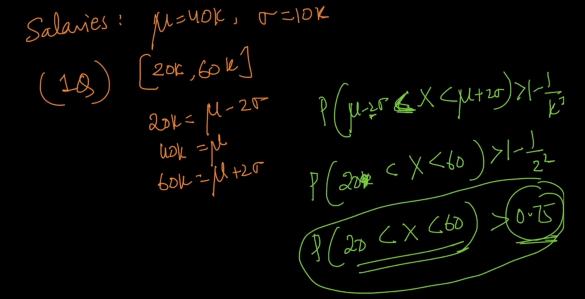 Salaries: μ=40k, σ=10k
(1Q) [20k, 60k]
20k = μ-2σ
40k = μ
60k = μ+2σ
P(μ-2σ < X < μ+2σ) > 1 - 1/k²
P(20k < X < 60) > 1 - 1/2²
P(20 < X < 60) > 0.75